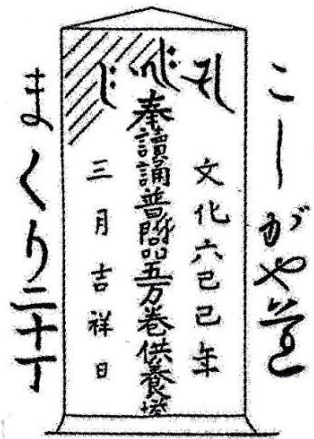 こしがや道
文化六己巳年
奉讀誦普門品五万巻供養塔
三月吉祥日
まくり二十丁